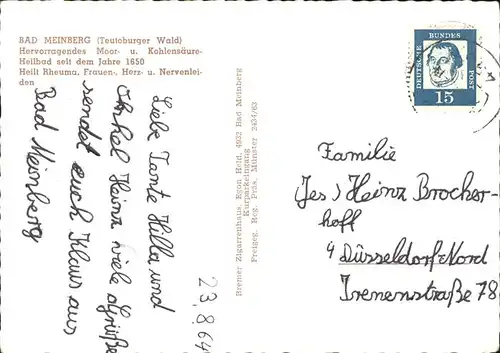 BAD MEINBERG (Teutoburger Wald)
Hervorragendes Moor- u. Kohlensäure-
Heilbad seit dem Jahre 1650
Heilt Rheuma, Frauen-, Herz- u. Nervenlei-
den
Liebe Tante Hilla und
Onkel Heinz viele Grüße
sendet euch Klaus aus
Bad Meinberg
23.8.64
Bremer Zigarrenhaus, Egon Held, 4932 Bad Meinberg
Kurparkeingang
Freigeg. Reg. Präs. Münster 2434/63
DEUTSCHE BUNDES POST
15
Familie
(Jes) Heinz Brocker-
hoff
4 Düsseldorf-Nord
Irenenstraße 78